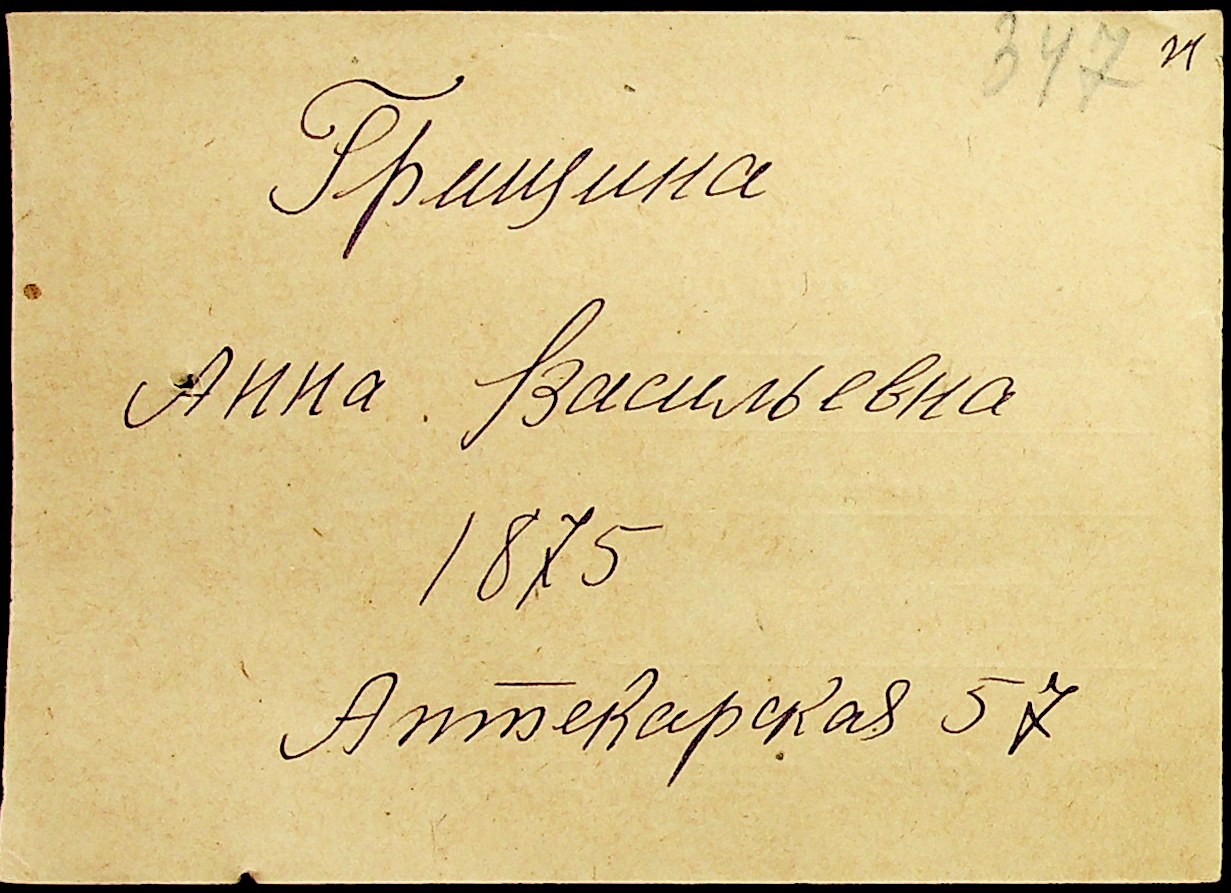 347 21
Грищина
Анна Васильевна
1875
Аптекарская 57